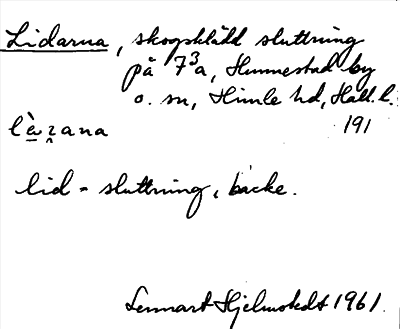 Lidarna, skogsklädd sluttning
på 7³a, Hunnestad by
o. sn, Himle hd, Hall. l.
191
lid = sluttning, backe.
Lennart Hjelmstedt 1961.